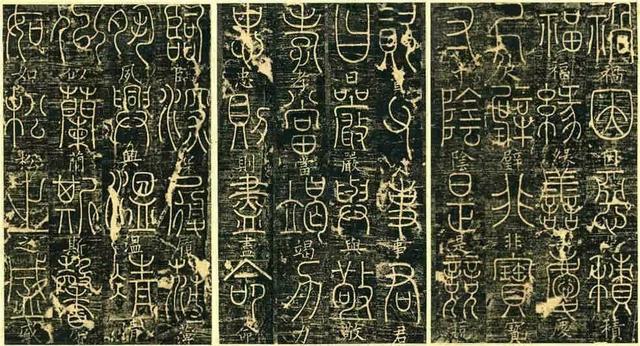 禍因惡積
福緣善慶
尺璧非寶
寸陰是競
資父事君
曰嚴與敬
孝當竭力
忠則盡命
臨深履薄
夙興溫凊
似蘭斯馨
如松之盛